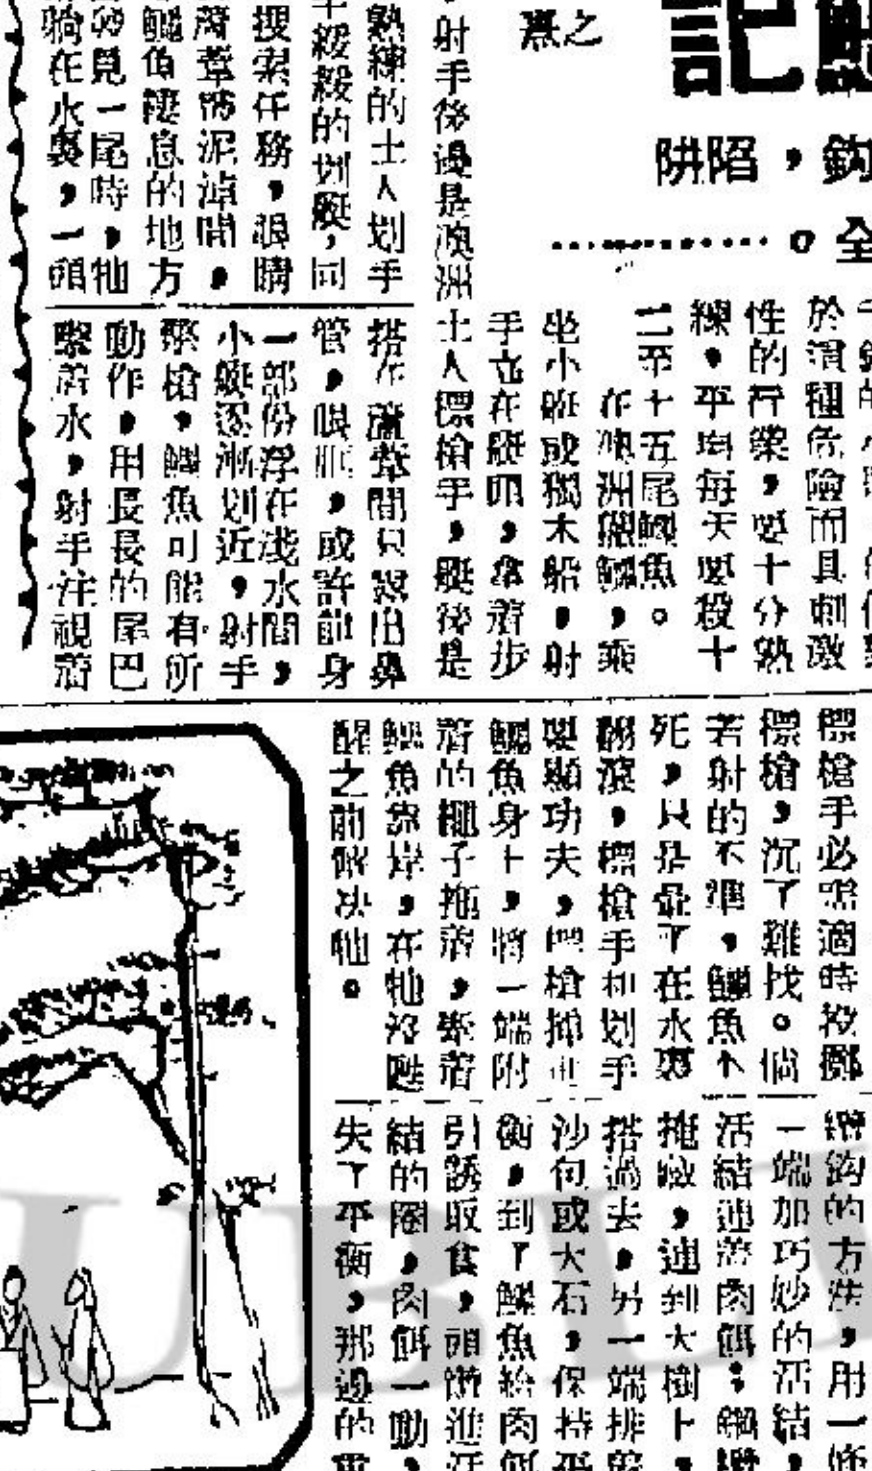 記鱷
熹之
鈎，陷阱
全。
於這種危險而具刺激
性的行業，要十分熟
練，平均每天要殺十
二至十五尾鱷魚。
在澳洲獵鱷，乘
坐小艇或獨木船，射
手立在艇頭，拿着步
射手後邊是澳洲土人標槍手，艇後是
熟練的土人划手
緩緩的划艇，同
搜索任務，眼睛
蘆葦帶泥淖間，
鱷魚棲息的地方
覓一尾時，牠
躺在水裏，一頭
搭在蘆葦間只露出鼻
管，眼眶，或許部身
一部份浮在淺水間，
小艇逐漸划近，射手
舉槍，鱷魚可能有所
動作，用長長的尾巴
擊着水，射手注視着
標槍手必需適時投擲
標槍，沉了難找。倘
若射的不準，鱷魚不
死，只是暈了在水裏
翻滾，標槍手和划手
要顯功夫，標槍擲進
鱷魚身上，將一端附
着的繩子拖着，牽着
鱷魚靠岸，在牠沒甦
醒之前解决牠。
鋼鈎的方法，用一條
一端加巧妙的活結，
活結連着肉餌；鋼纜
掩蔽，連到大樹上，
搭過去，另一端排着
沙包或大石，保持平
衡，到了鱷魚給肉餌
引誘取食，頭鑽進活
結的圈，肉餌一動，
失了平衡，那邊的重